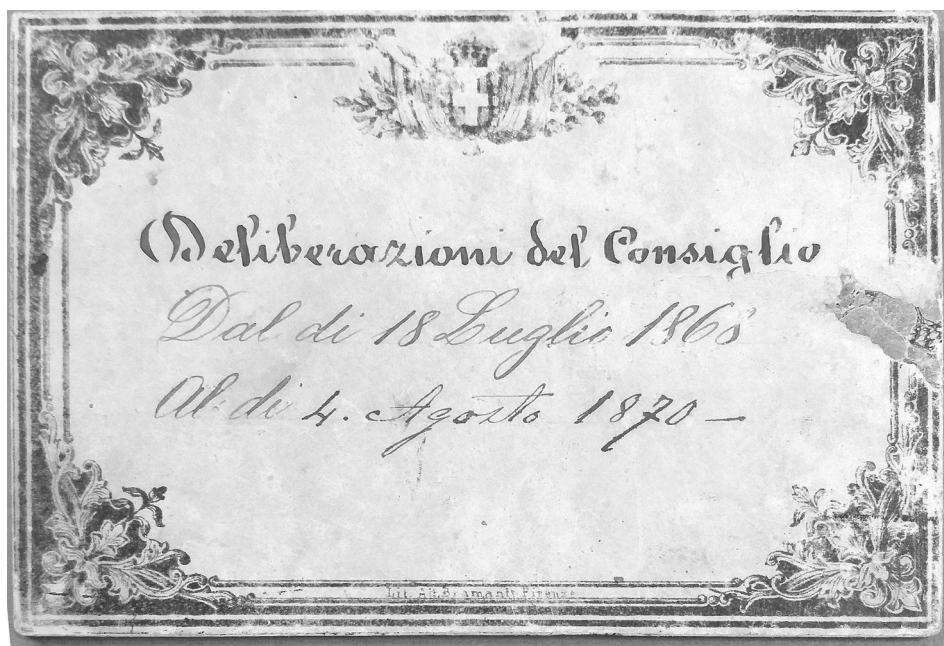 Deliberazioni del Consiglio
Dal di 18 Luglio 1868
Al di 4. Agosto 1870 –
Lit. Bramanti Firenze